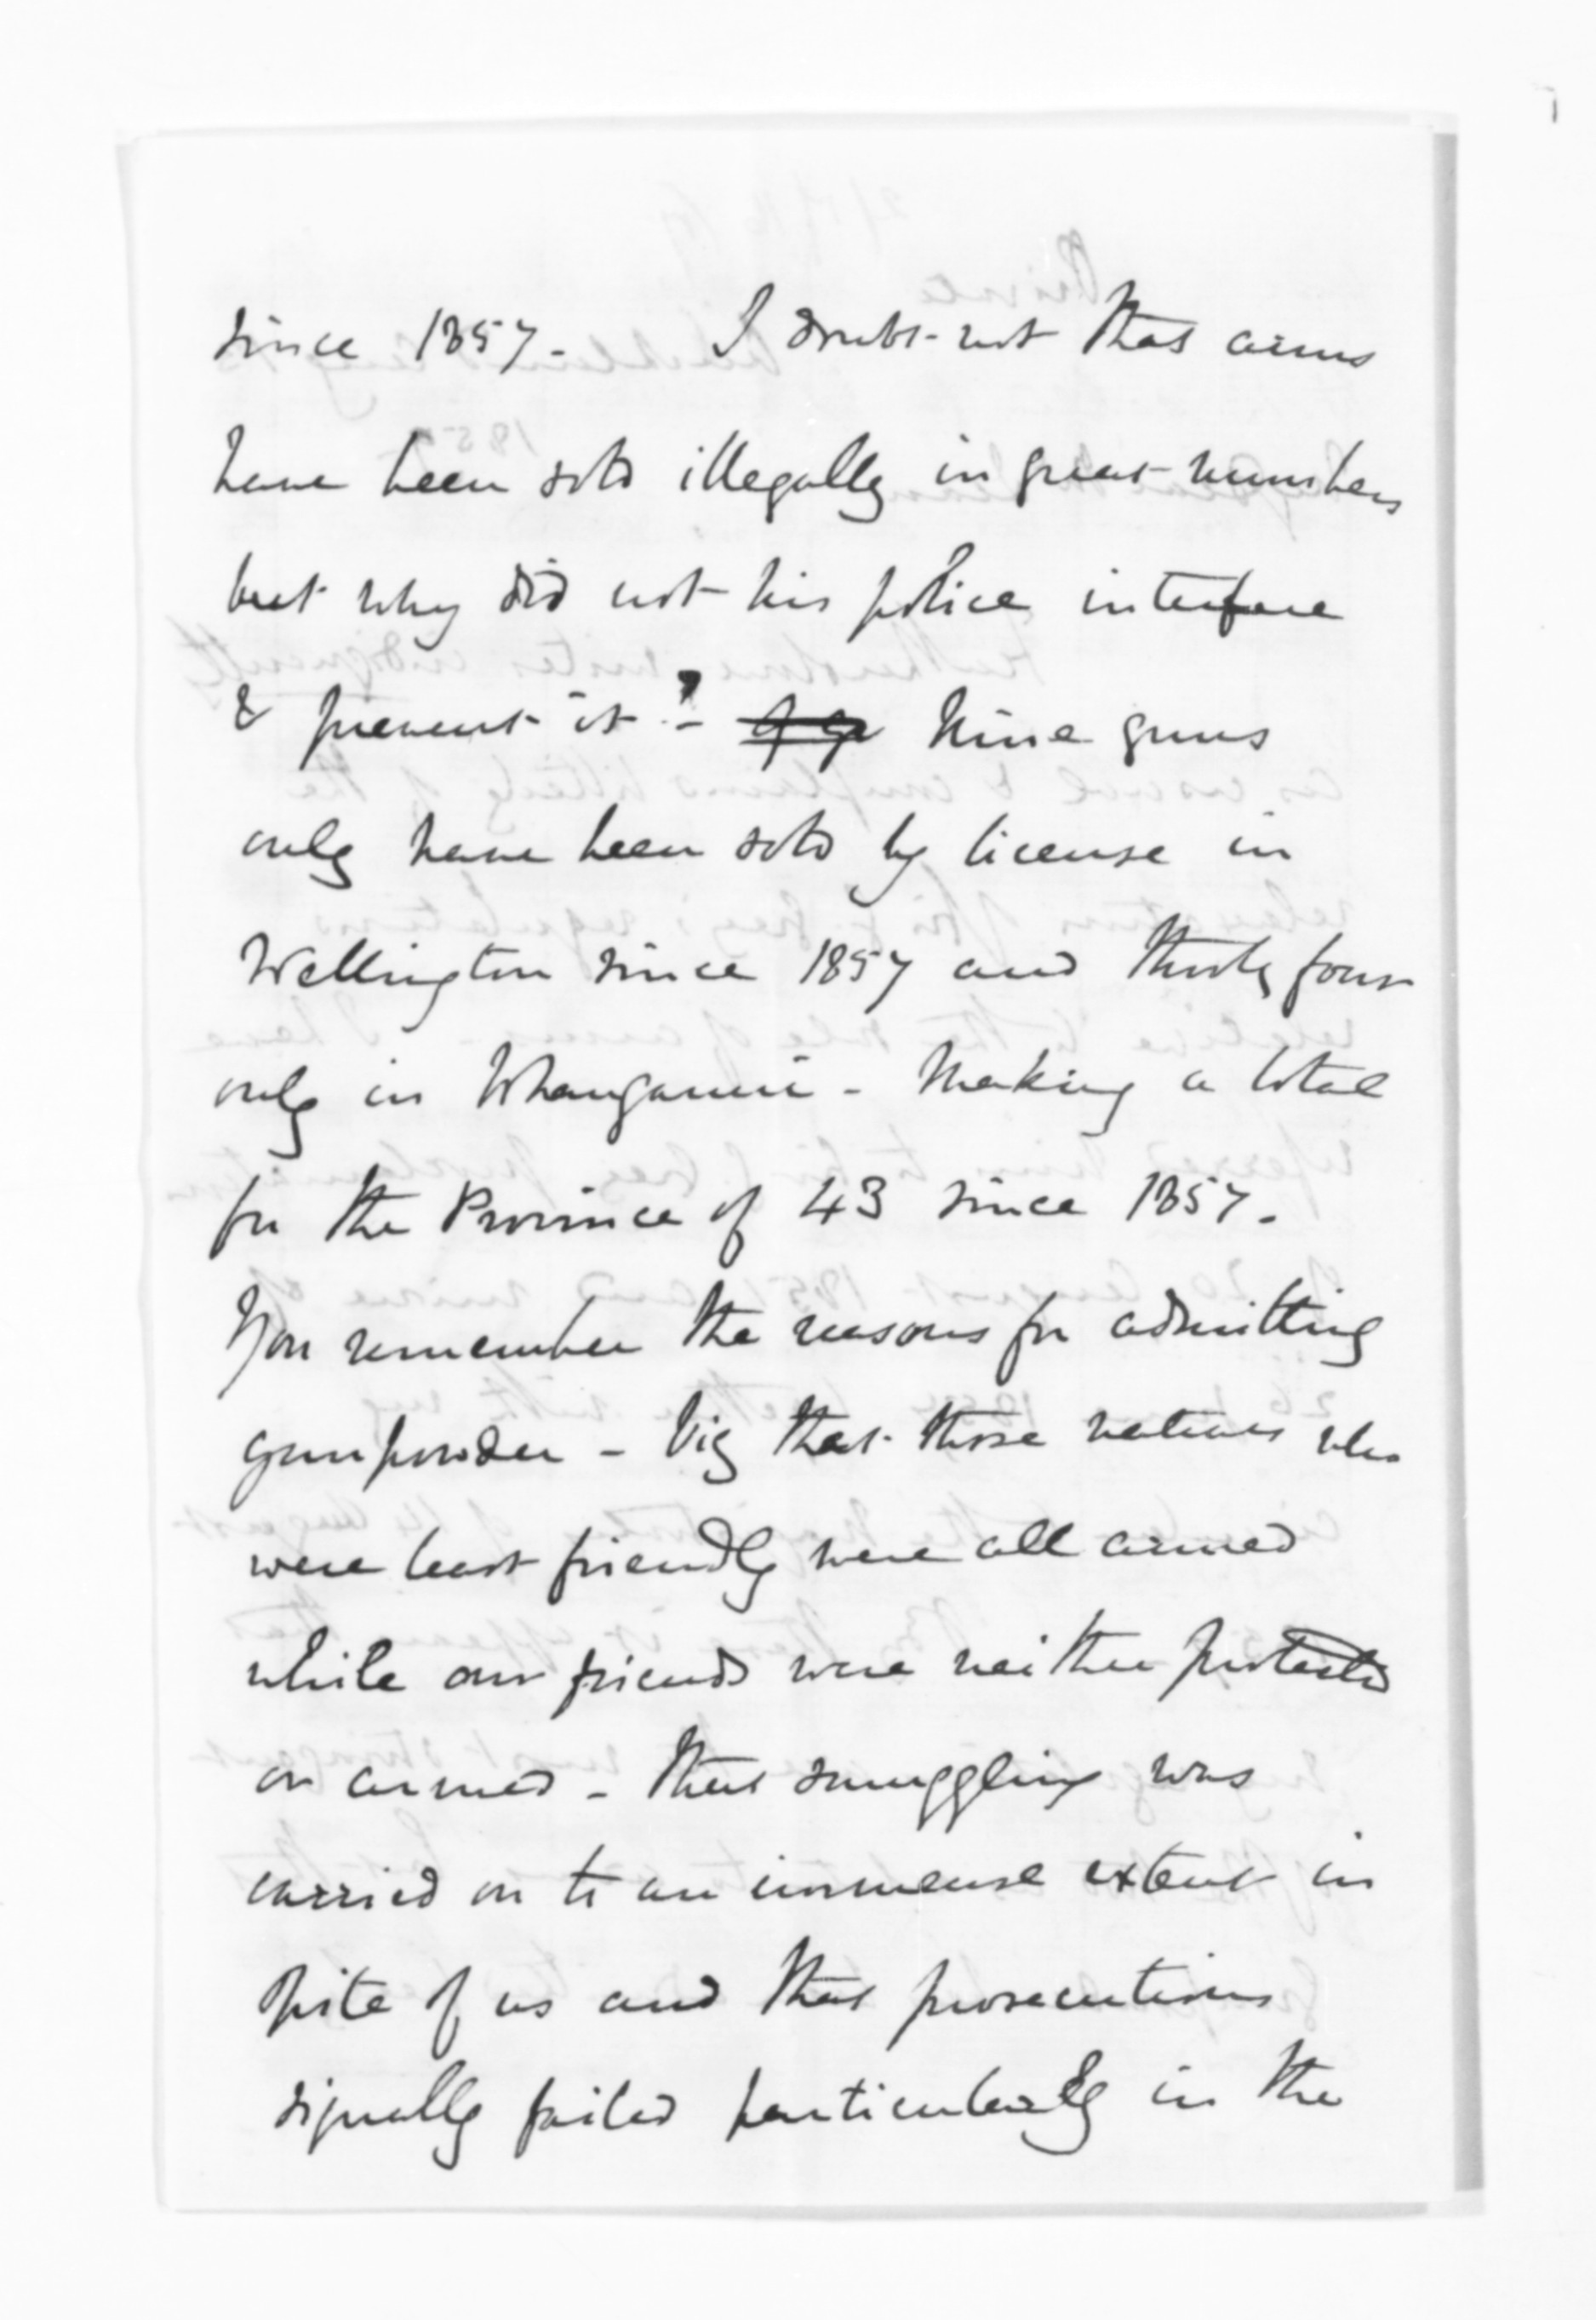 since 1857. I doubt not that arms
have been sold illegally in great numbers
but why did not his police interfere
& prevent it? Nine guns
only have been sold by license in
Wellington since 1857 and thirty four
only in Whanganui - Making a total
for the Province of 43 since 1857.
You remember the reasons for admitting
gunpowder - Viz that those natives who
were least friendly were all armed
while our friends were neither protected
or armed - that smuggling was
carried on to an immense extent in
spite of us and that prosecutions
signally failed particularly in the